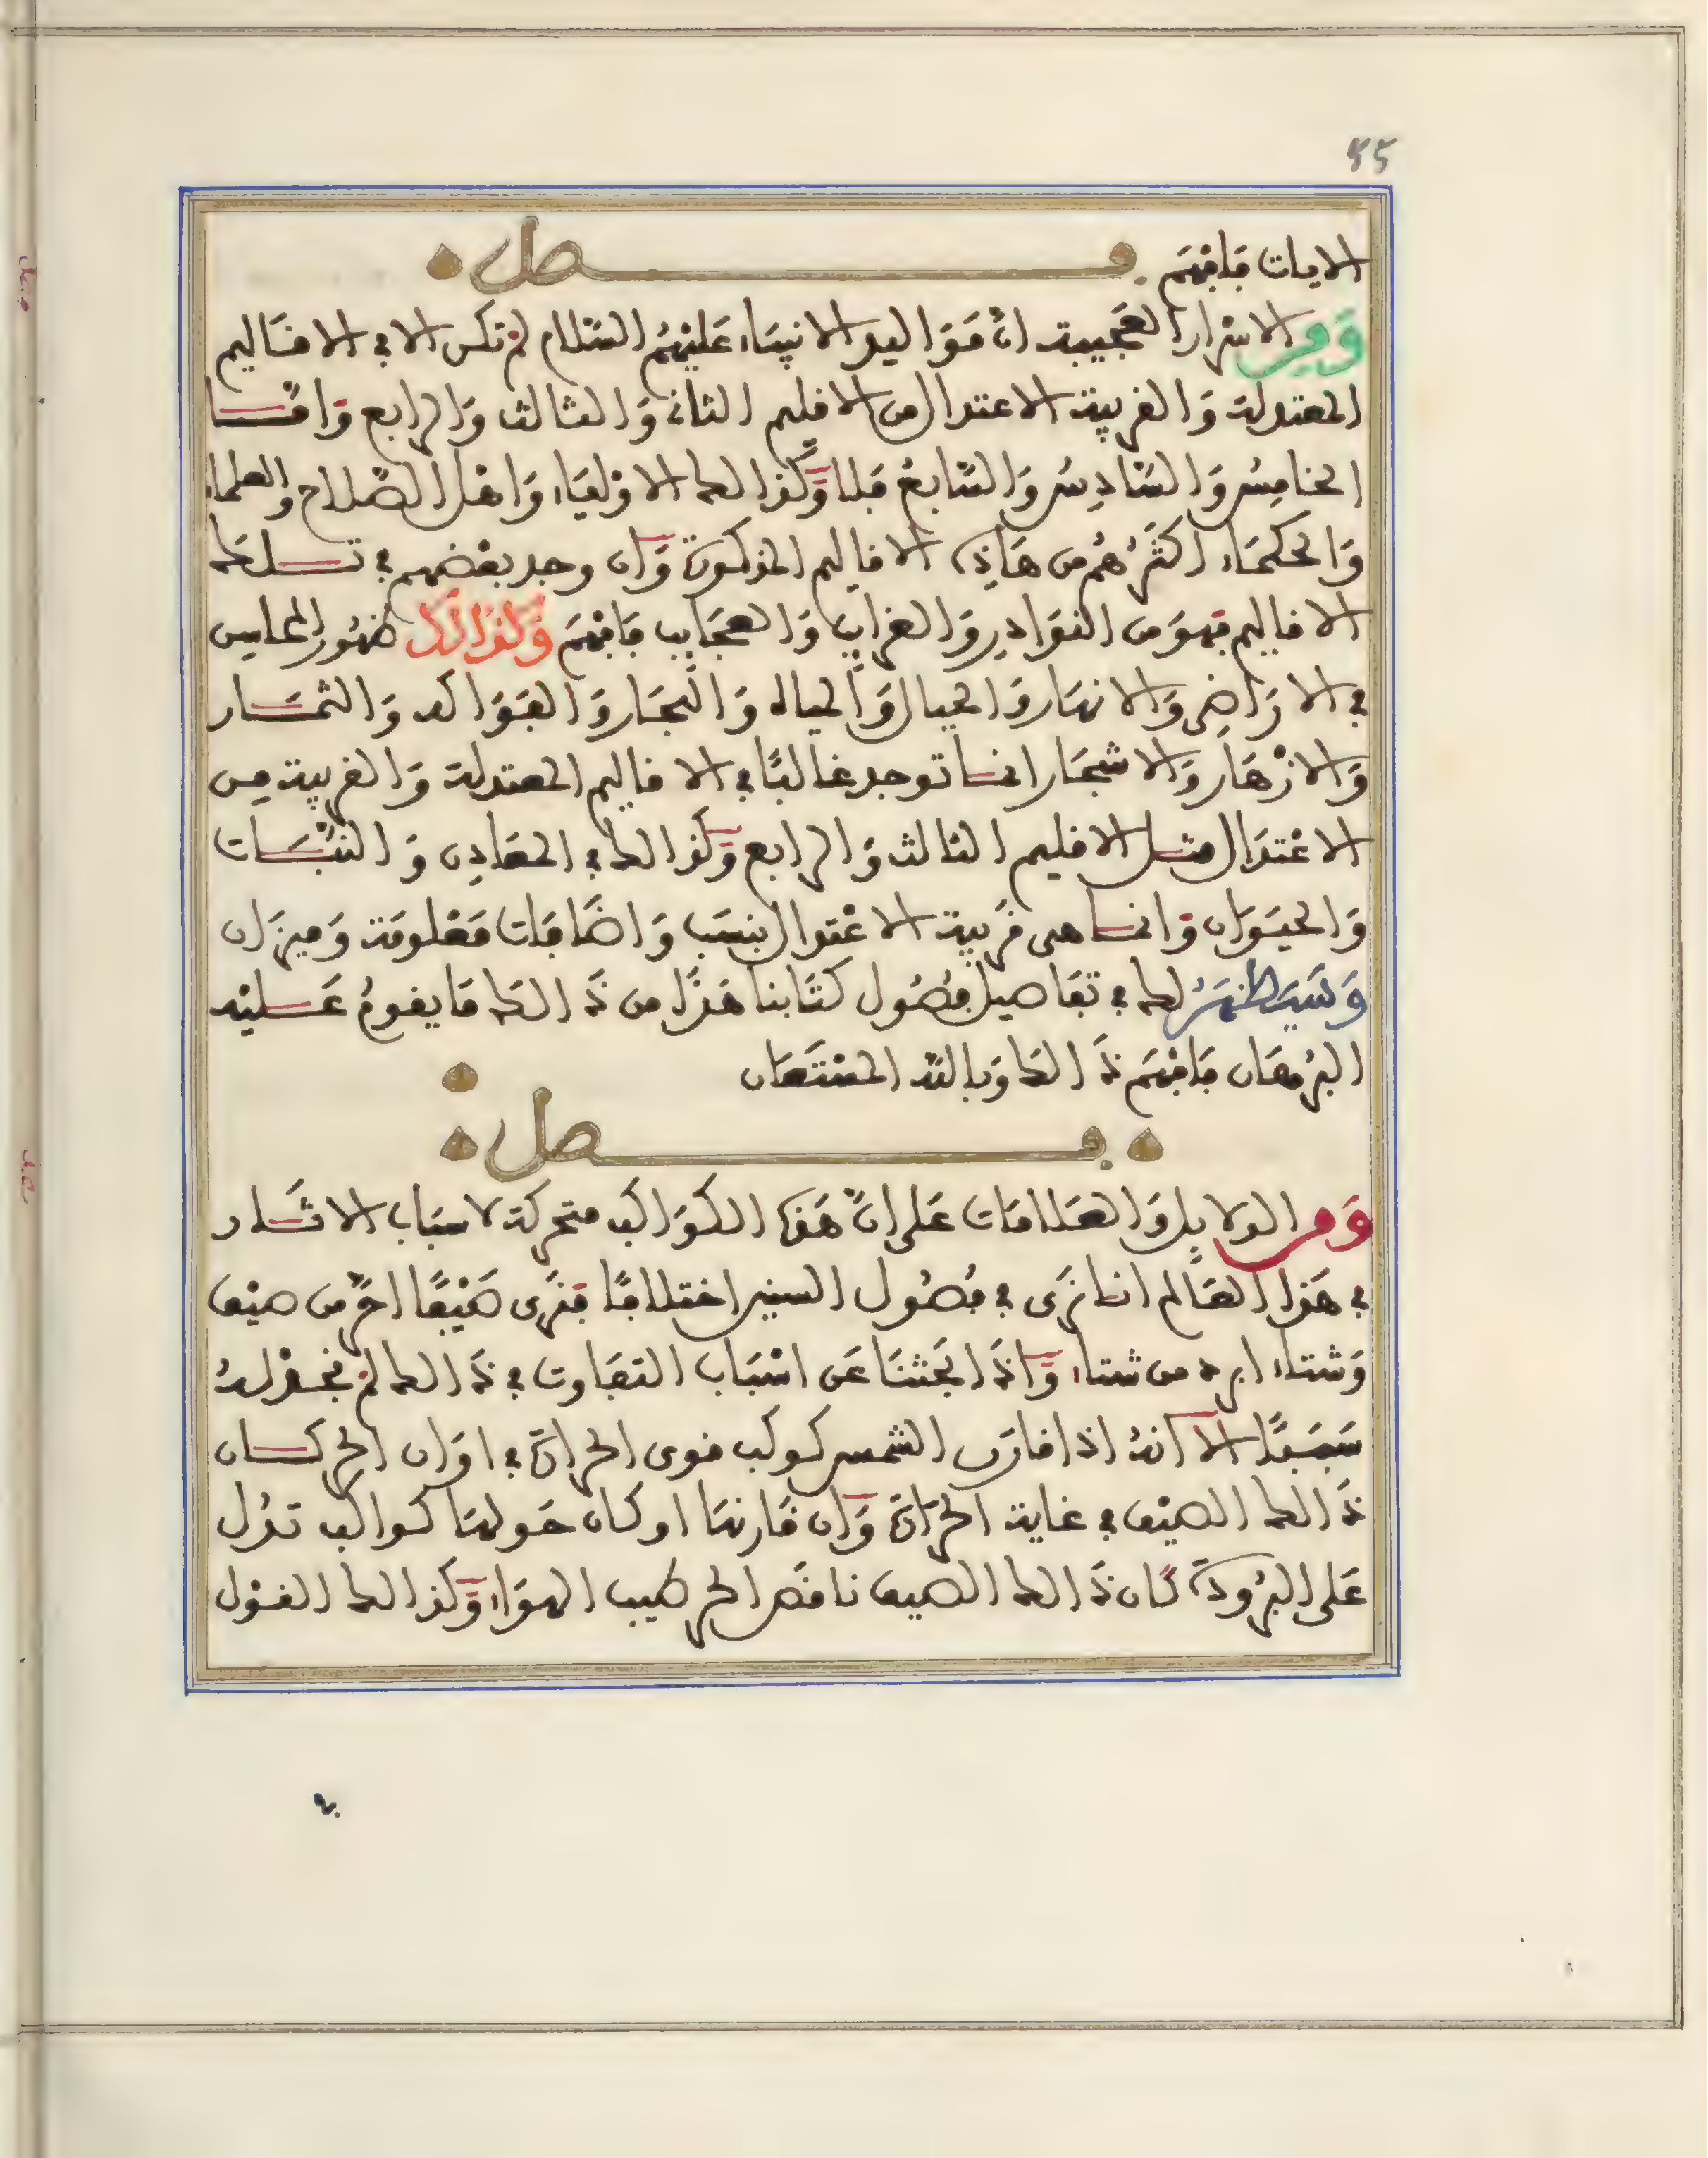 55
الايات فافهم فصل
ومن الاسرار العجيبة ان مواليد الانبياء عليهم السلام لم تكن الا في الاقاليم
المعتدلة والقريبة الاعتدال من الاقليم الثاني والثالث والرابع واما
الخامس والسادس والسابع فلا وكذالك الاولياء واهل الصلاح والعلماء
والحكماء اكثرهم من هاذه الاقاليم المذكورة وان وجد بعضهم في تلك
الاقاليم فهو من النوادر والغرايب والعجايب فافهم وكذالك ظهور المحاسن
في الاراضي والانهار والجبال والمياه والبحار والفواكه والثمار
والازهار والاشجار انما توجد غالبا في الاقاليم المعتدلة والقريبة من
الاعتدال مثل الاقليم الثالث والرابع وكذالك في المعادن والنبات
والحيوان وانما هي قريبة الاعتدال بنسب واضافات معلومة وميزان
وسيظهر لك في تفاصيل فصول كتابنا هذا من ذالك ما يقوم عليه
البرهان فافهم ذالك وبالله المستعان
فصل
ومن الدلايل والعلامات على ان هذه الكواكب متحركة لاسباب الاثار
في هذا العالم اننا نرى في فصول السنين اختلافا فنرى صيفا احر من صيف
وشتاء ابرد من شتاء واذا بحثنا عن اسباب التفاوت في ذالك لم نجد له
سببا الا انه اذا قارن الشمس كوكب قوي الحرارة في اوان الحر كان
ذالك الصيف في غاية الحرارة وان قارنها او كان حولها كواكب تدل
على البرودة كان ذالك الصيف ناقص الحر طيب الهواء وكذالك القول